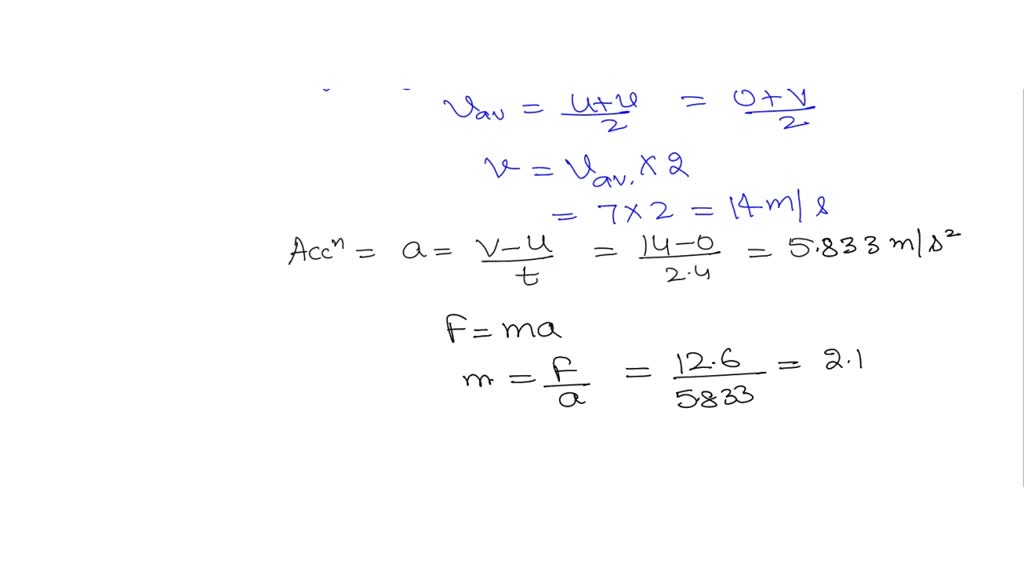 Vav = u+v/2 = 0+v/2
v = Vav. × 2
= 7×2 = 14 m/s
Accⁿ = a = v-u/t = 14-0/2.4 = 5.833 m/s²
F = ma
m = F/a = 12.6/5.833 = 2.1